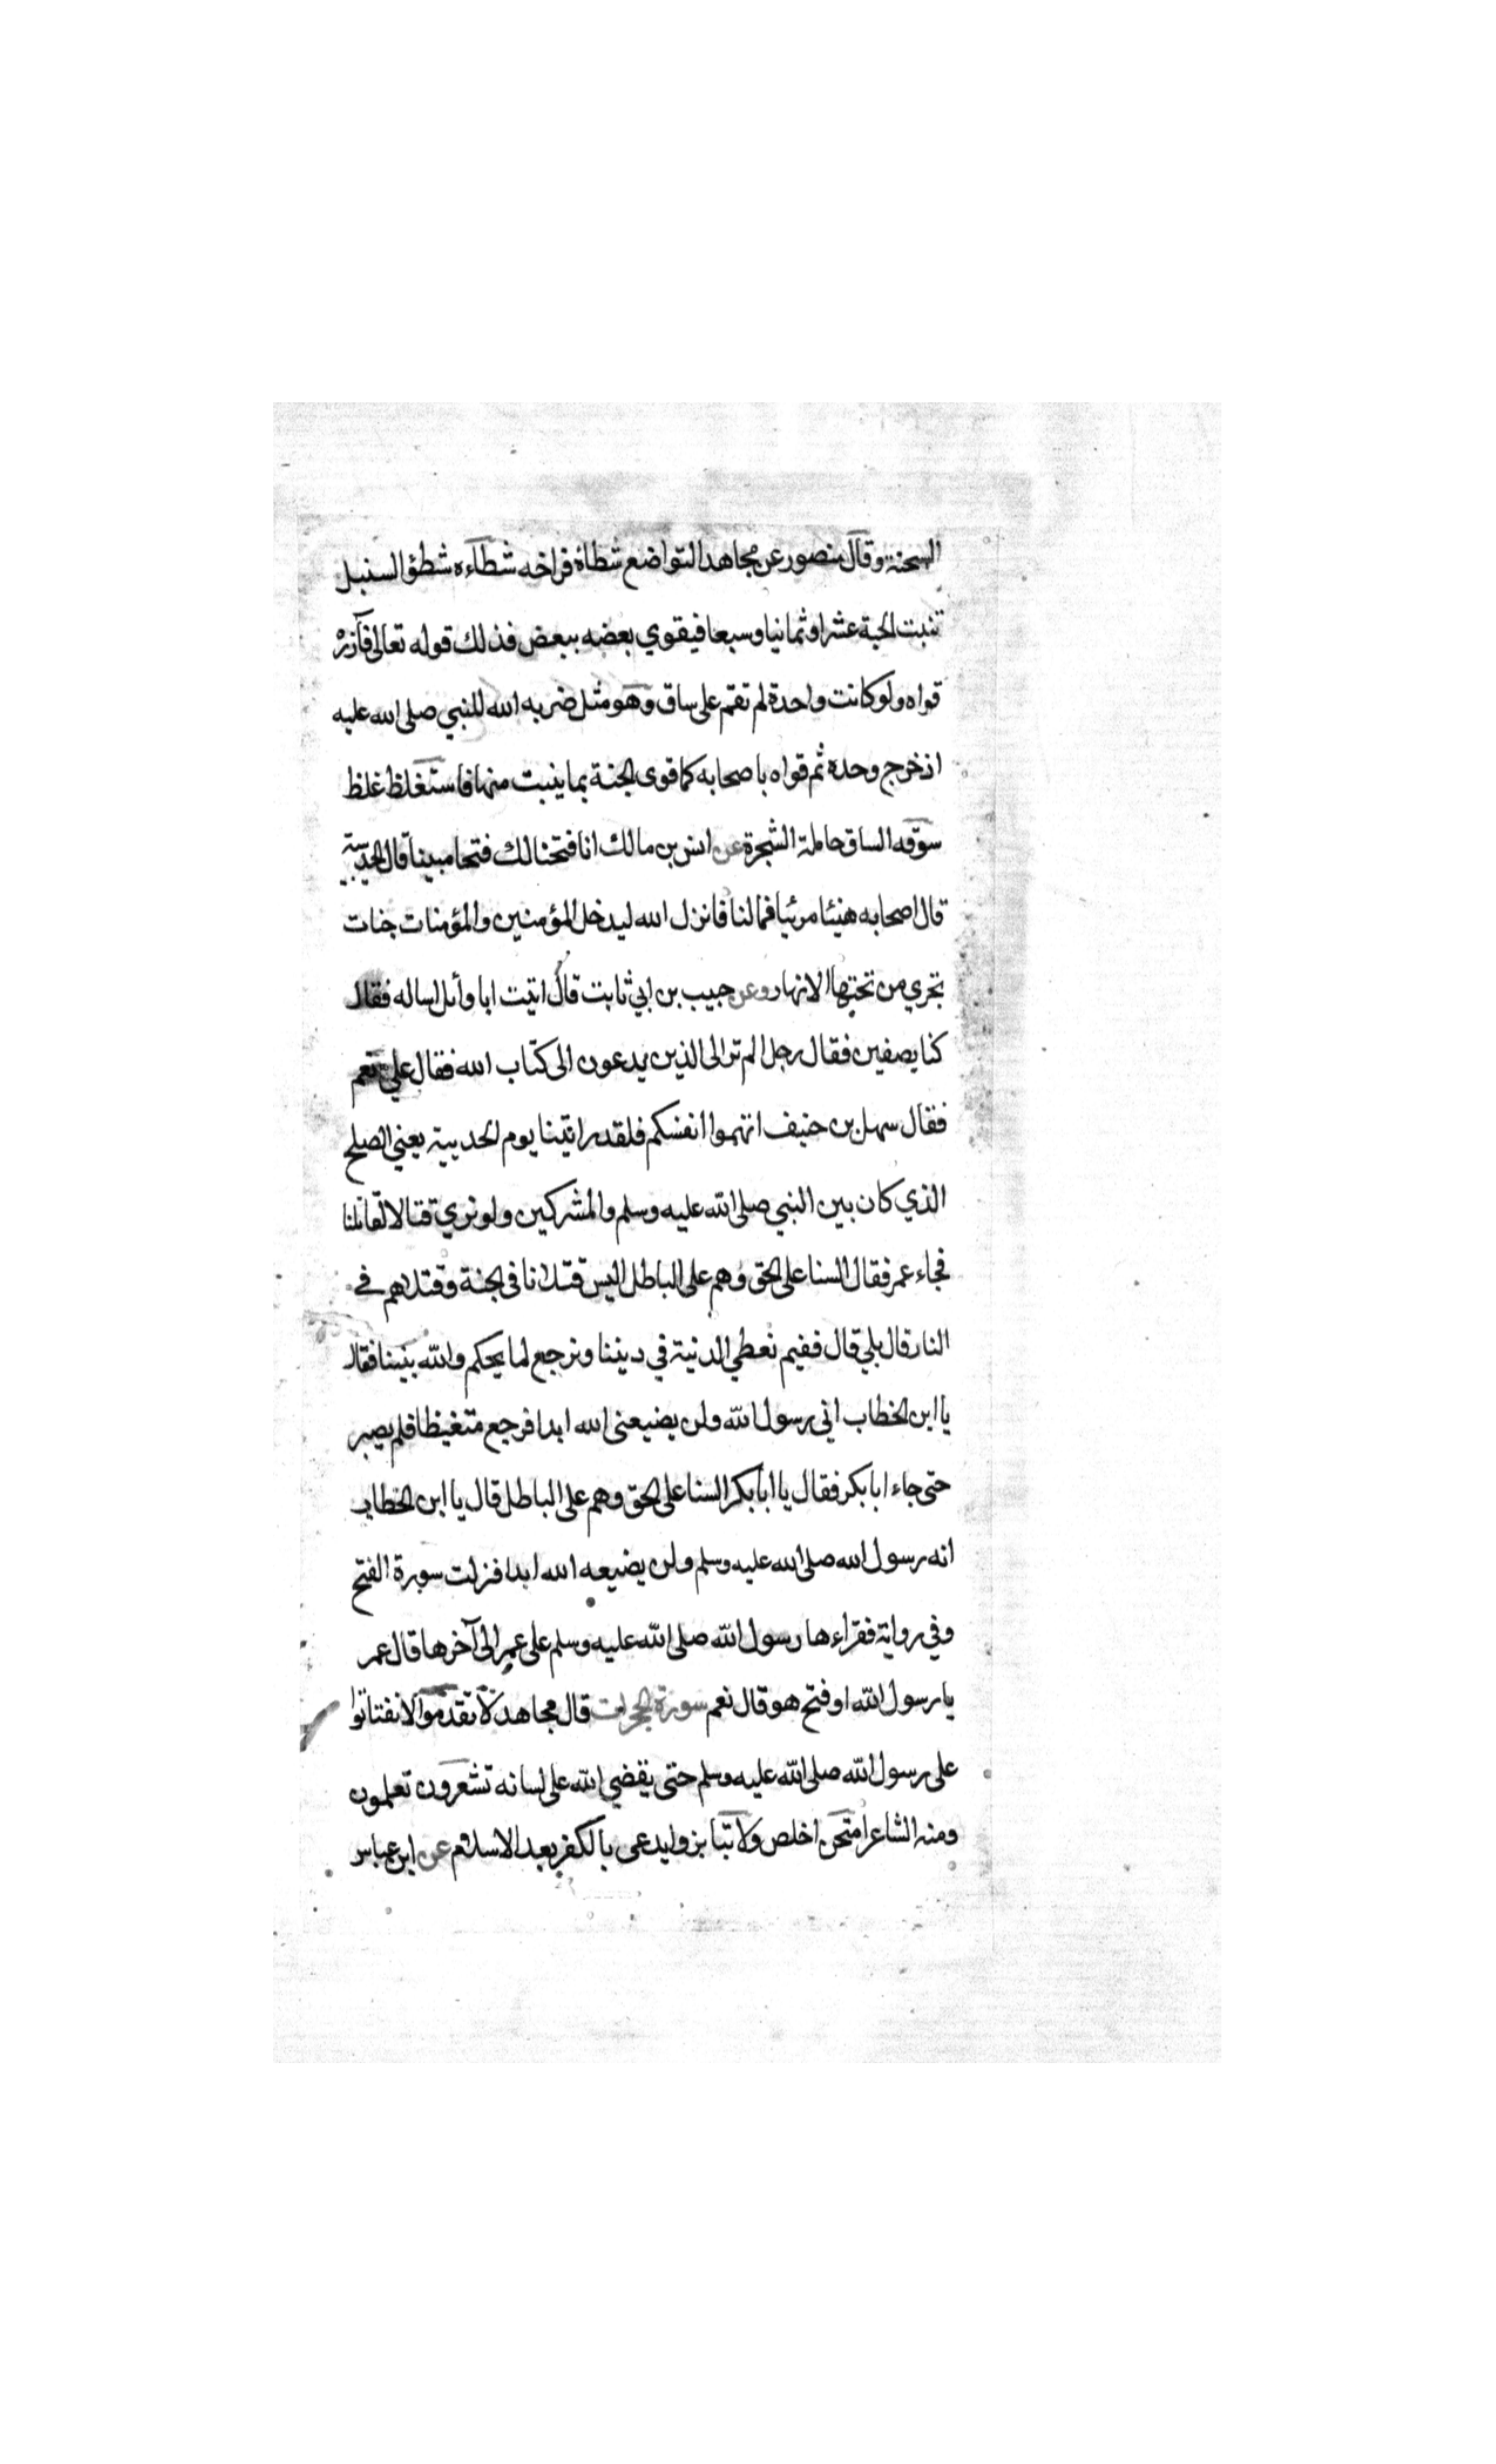 السحنة وقال منصور عن مجاهد التواضع شطأه فراخه شطاءه شطؤ السنبل
تنبت الحبة عشرا وثمانيا وسبعا فيقوي بعضه ببعض فذلك قوله تعالى فآزره
قواه ولو كانت واحدة لم تقم على ساق وهو مثل ضربه الله للنبي صلى الله عليه
اذ خرج وحده ثم قواه باصحابه كما قوى الجنة بما ينبت منها فاستغلظ غلظ
سوقه الساق حاملة الشجرة عن انس بن مالك انا فتحنا لك فتحا مبينا قال الحديبية
قال اصحابه هنيئا مرئيا فما لنا فانزل الله ليدخل المؤمنين والمؤمنات جنات
تجري من تحتها الانهار وعن حبيب بن ابي ثابت قال اتيت ابا وائل اساله فقال
كنا بصفين فقال رجل الم تر الى الذين يدعون الى كتاب الله فقال علي نعم
فقال سهل بن حنيف اتهموا انفسكم فلقد رائيتنا يوم الحديبية يعني الصلح
الذي كان بين النبي صلى الله عليه وسلم والمشركين ولو نري قتالا لقاتلنا
فجاء عمر فقال السنا على الحق وهم على الباطل اليس قتلانا في الجنة وقتلاهم في
النار قال بلي قال ففيم نعطي الدنية في ديننا ونرجع لما يحكم والله بيننا فقال
يا ابن الخطاب اني رسول الله ولن يضيعني الله ابدا فرجع متغيظا فلم يصبر
حتى جاء ابا بكر فقال يا ابا بكر السنا على الحق وهم على الباطل قال يا ابن الخطاب
انه رسول الله صلى الله عليه وسلم ولن يضيعه الله ابدا فنزلت سورة الفتح
وفي رواية فقراءها رسول الله صلى الله عليه وسلم على عمر الى آخرها قال عمر
يا رسول الله اوفتح هو قال نعم سورة الحجرات قال مجاهد لا تقدموا لا تفتاتوا
على رسول الله صلى الله عليه وسلم حتى يقضي الله على لسانه تشعرون تعلمون
ومنه الشاعر امتحن اخلص ولا تنابزوا يدعى بالكفر بعد الاسلام عن ابن عباس